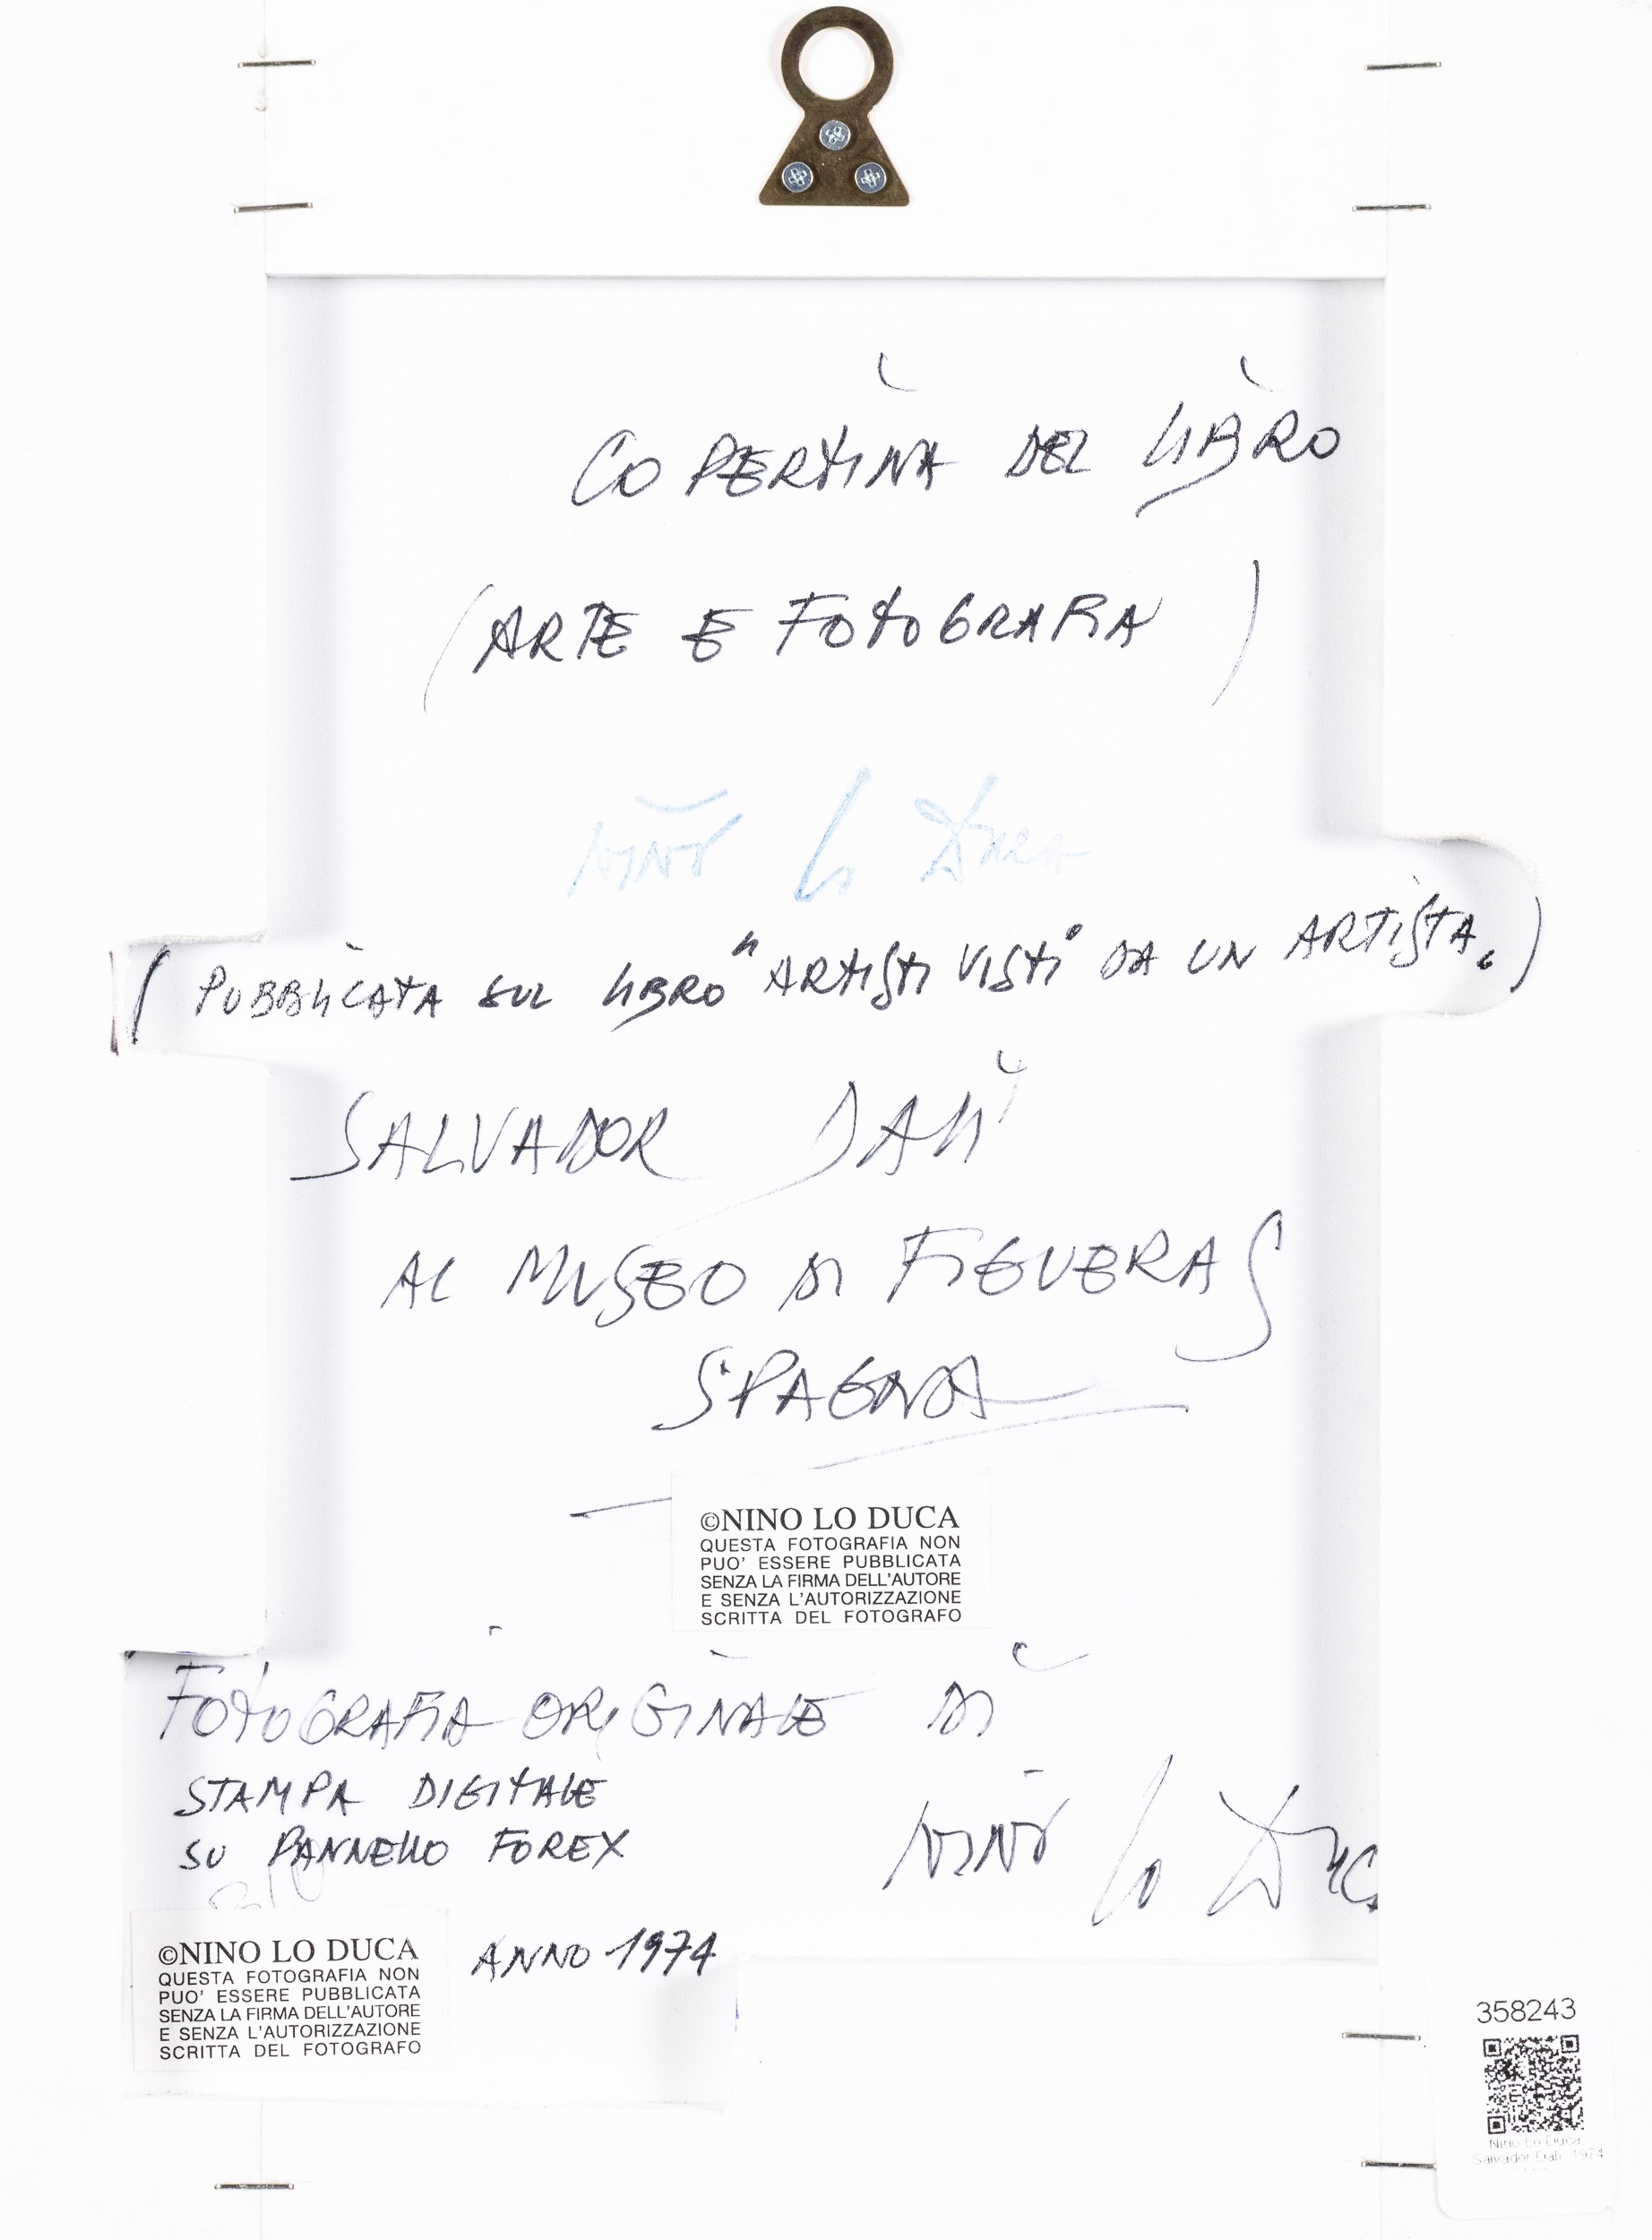 COPERTINA DEL LIBRO
(ARTE E FOTOGRAFIA)
NINO LO DUCA
(PUBBLICATA SUL LIBRO "ARTISTI VISTI" DA UN ARTISTA.)
SALVADOR DALI'
AL MUSEO DI FIGUERAS
SPAGNA
©NINO LO DUCA
QUESTA FOTOGRAFIA NON
PUO' ESSERE PUBBLICATA
SENZA LA FIRMA DELL'AUTORE
E SENZA L'AUTORIZZAZIONE
SCRITTA DEL FOTOGRAFO
FOTOGRAFIA ORIGINALE DI
STAMPA DIGITALE
SU PANNELLO FOREX
NINO LO DUCA
ANNO 1974
©NINO LO DUCA
QUESTA FOTOGRAFIA NON
PUO' ESSERE PUBBLICATA
SENZA LA FIRMA DELL'AUTORE
E SENZA L'AUTORIZZAZIONE
SCRITTA DEL FOTOGRAFO
358243
Nino Lo Duca
Salvador Dalì, 1974